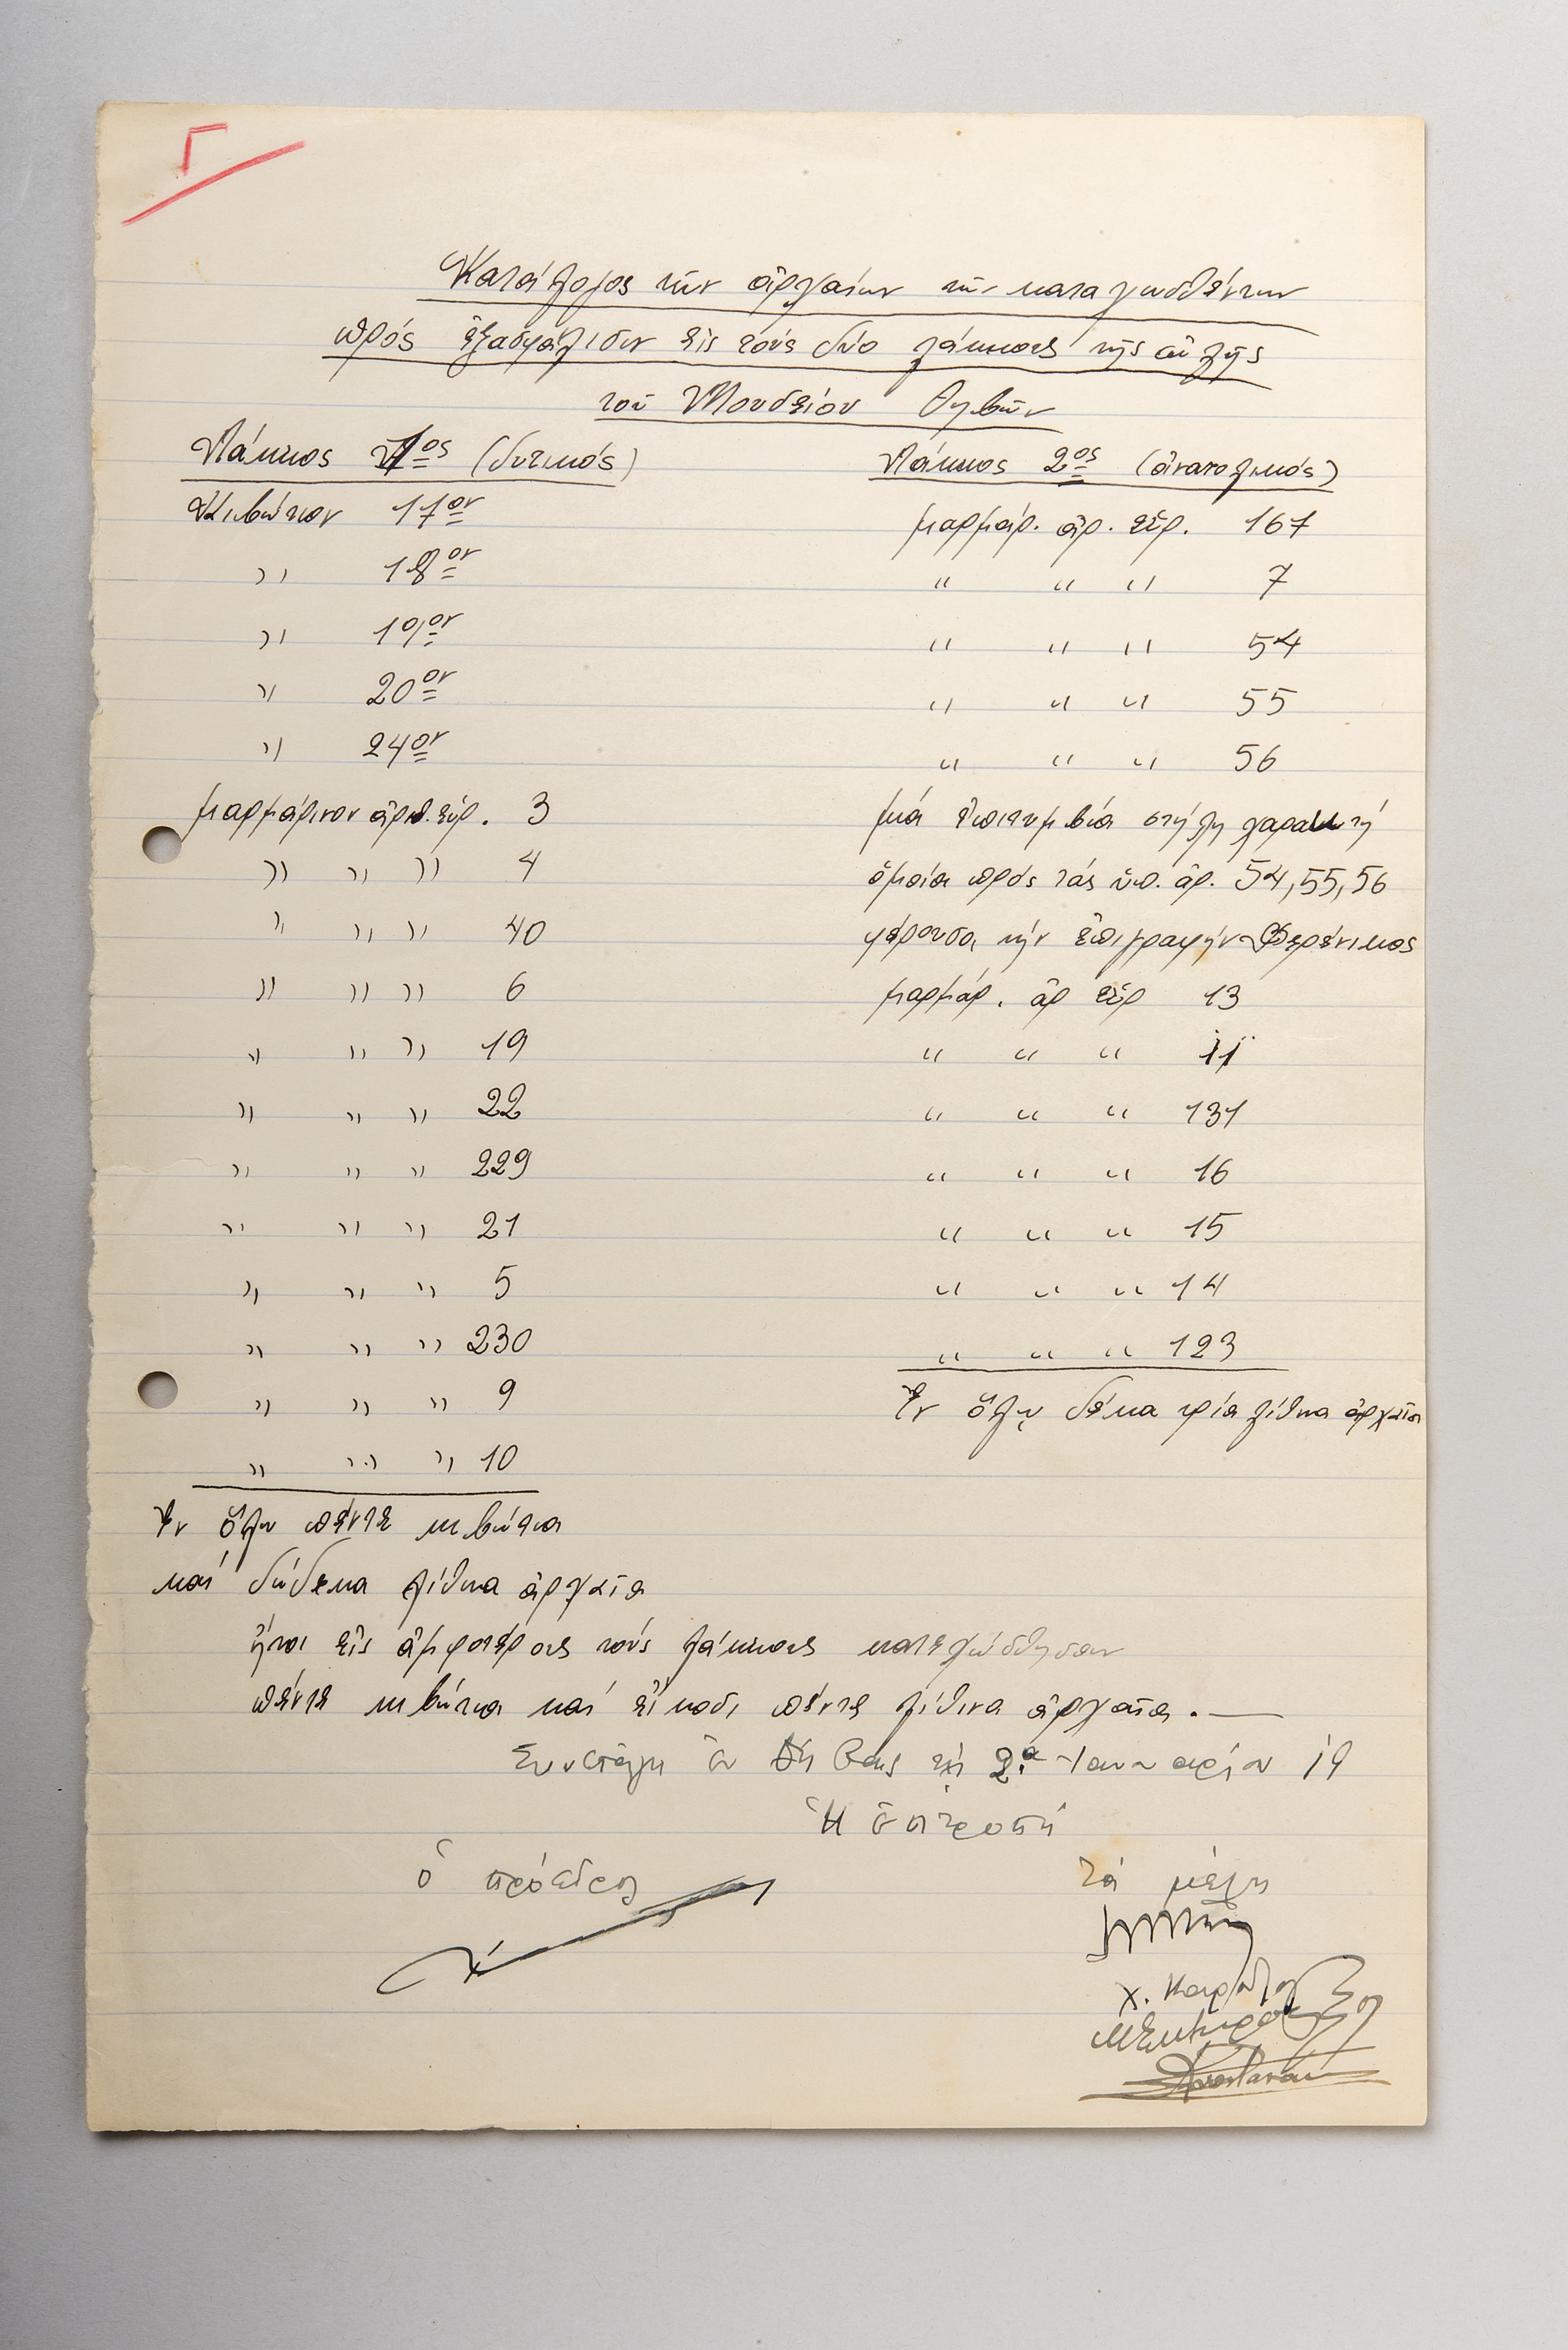 Γ
Κατάλογος τῶν ἀρχαίων τῶν καταχωσθέντων
πρός ἐξασφάλισιν εἰς τούς δύο λάκκους τῆς αὐλῆς
τοῦ Μουσείου Θηβῶν
Λάκκος 1ος (δυτικός)
Κιβώτιον 17ον
〃 18ον
〃 19ον
〃 20ον
〃 24ον
μαρμάρινον ἀριθ. εὑρ. 3
〃 〃 〃 4
〃 〃 〃 40
〃 〃 〃 6
〃 〃 〃 19
〃 〃 〃 22
〃 〃 〃 229
〃 〃 〃 21
〃 〃 〃 5
〃 〃 〃 230
〃 〃 〃 9
〃 〃 〃 10
Ἐν ὅλῳ πέντε κιβώτια
καί δώδεκα λίθινα ἀρχαῖα
Λάκκος 2ος (ἀνατολικός)
μαρμάρ. ἀρ. εὑρ. 167
〃 〃 〃 7
〃 〃 〃 54
〃 〃 〃 55
〃 〃 〃 56
μιά ἐπιτυμβία στήλη χαρακτή
ὁμοία πρός τάς ὑπ. ἀρ. 54, 55, 56
φέρουσα τήν ἐπιγραφήν Φερένικος
μαρμάρ. ἀρ εὑρ 13
〃 〃 〃 11
〃 〃 〃 131
〃 〃 〃 16
〃 〃 〃 15
〃 〃 〃 14
〃 〃 〃 123
Ἐν ὅλῳ δέκα τρία λίθινα ἀρχαῖα
ἤτοι εἰς ἀμφοτέρους τούς λάκκους κατεχώσθησαν
πέντε κιβώτια καί εἴκοσι πέντε λίθινα ἀρχαῖα.—
Συνετάγη ἐν Θήβαις τῇ 2ᾳ Ἰανουαρίου 19
Ἡ ἐπιτροπή
ὁ πρόεδρος
τά μέλη